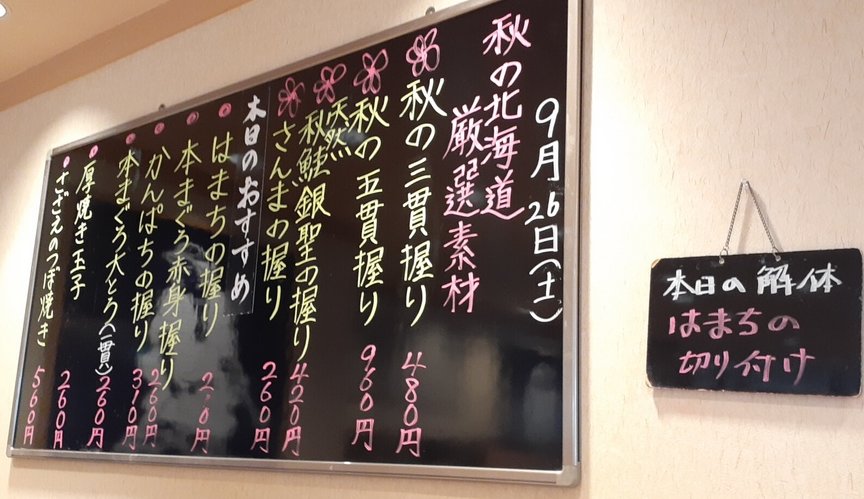 9月26日(土)
秋の北海道
厳選素材
秋の三貫握り 480円
秋の五貫握り 960円
天然
秋鮭銀聖の握り 420円
さんまの握り 260円
本日のおすすめ
はまちの握り
本まぐろ赤身握り 260円
かんぱちの握り 310円
本まぐろ大とろ(一貫) 260円
厚焼き玉子 260円
さざえのつぼ焼き 560円
本日の解体
はまちの
切り付け